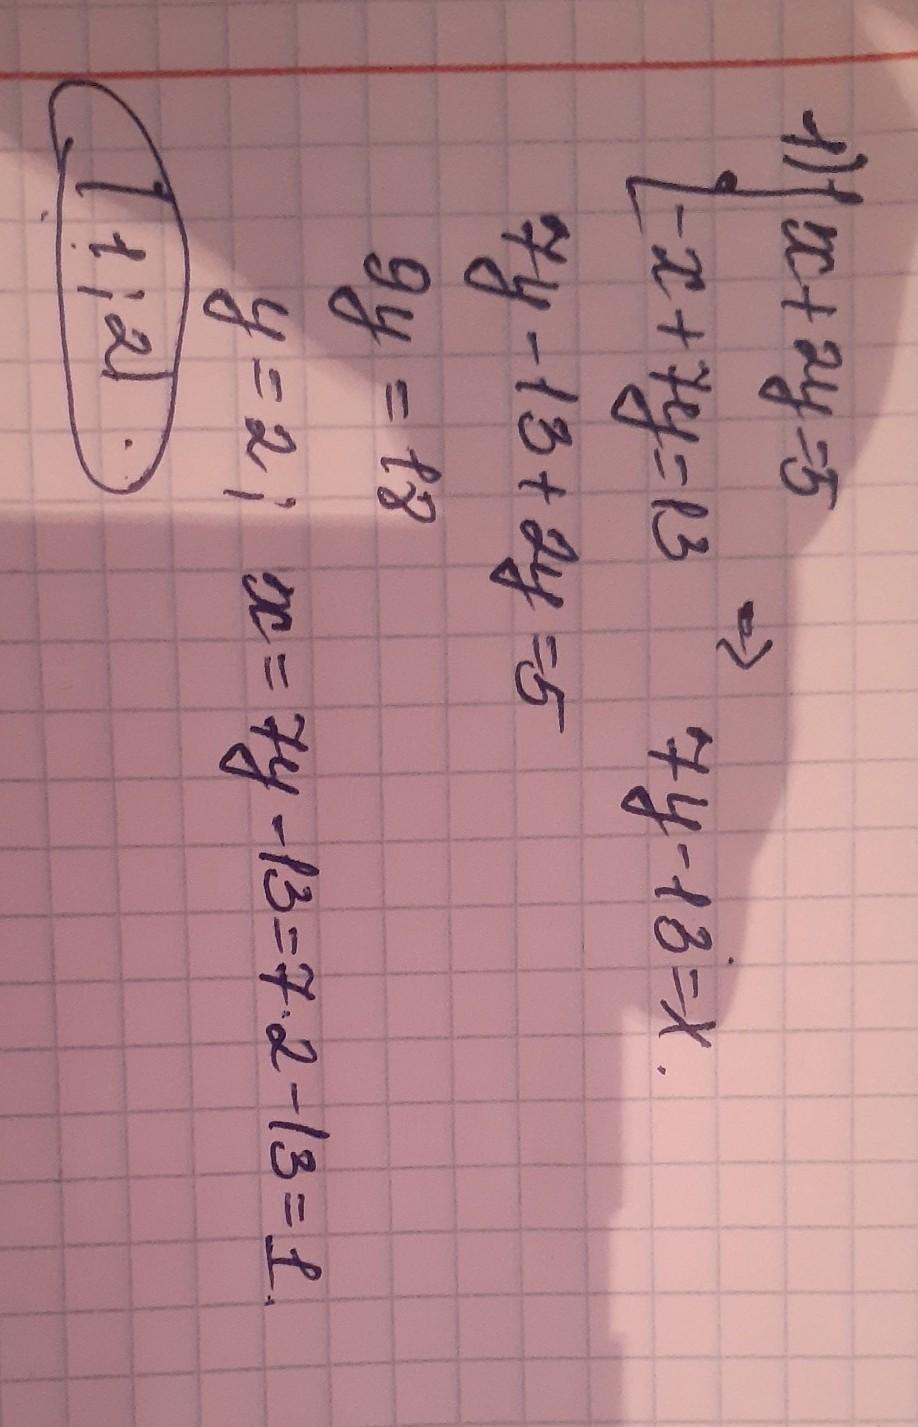 1) { x + 2y = 5
-x + 7y = 13 ⇒ 7y - 13 = x.
7y - 13 + 2y = 5
9y = 18
y = 2; x = 7y - 13 = 7·2 - 13 = 1.
(1; 2).